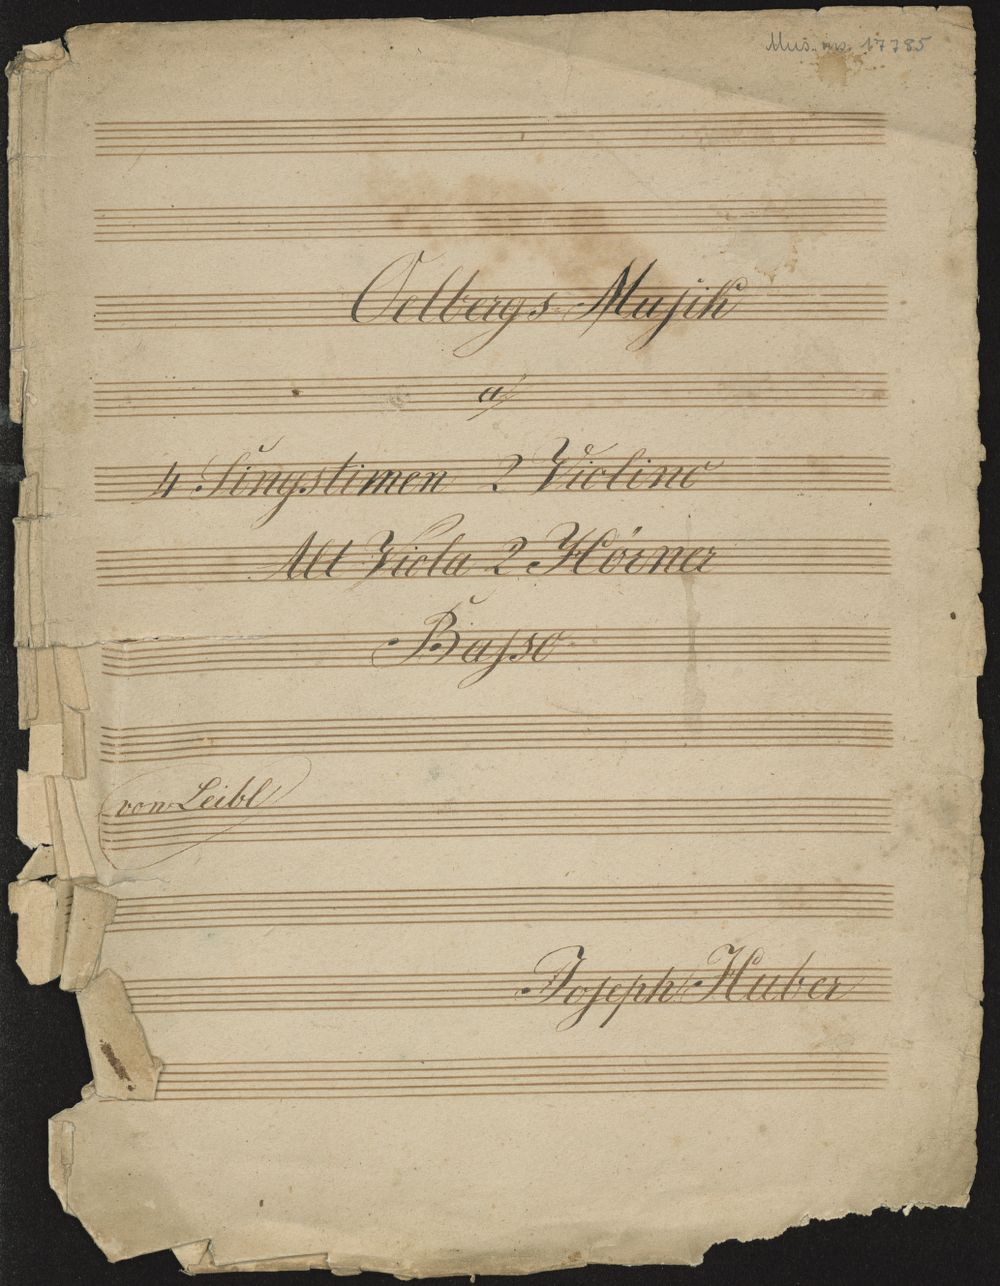 Mus. ms. 17785
Oelbergs-Musik
a
4 Singstimen 2 Violino
Alt Viola 2 Hörner
Basso
von Leibl
Joseph Huber